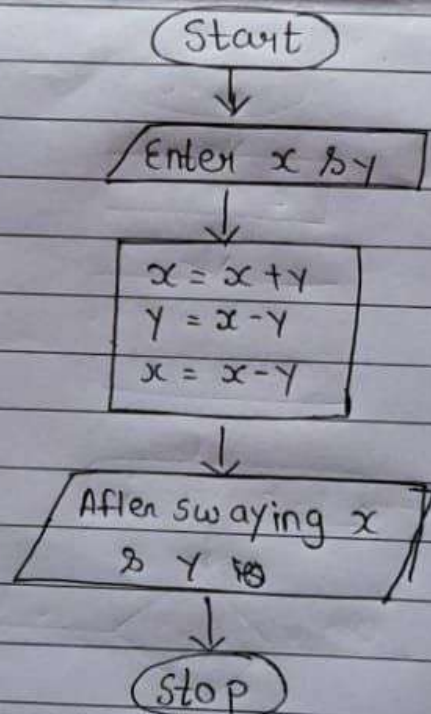 Start
Enter x & y
x = x + y
y = x - y
x = x - y
After swaying x
& y
Stop